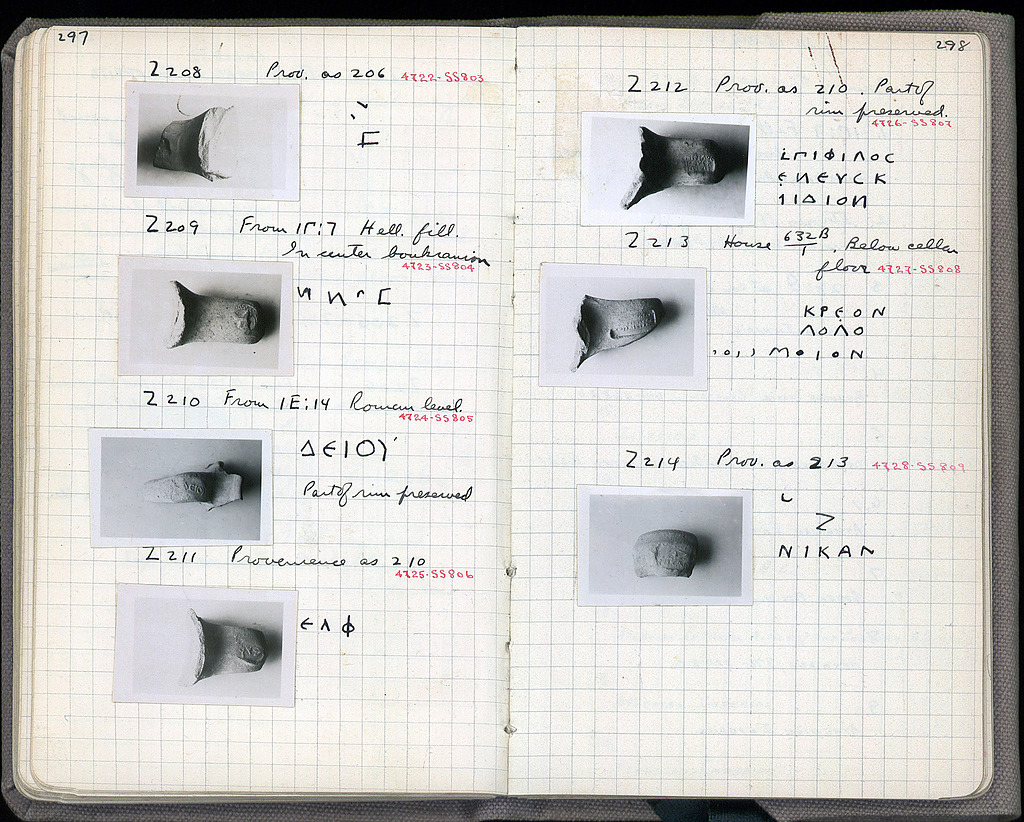 297
Z 208 Prov. as 206 4722-SS803
⊏
Z 209 From ΙΓ:7 Hell. fill.
In center boukranion
4723-SS804
И И ⌜ ⊏
Z 210 From ΙΕ:14 Roman level.
4724-SS805
ΔΕΙΟΥ
Part of rim preserved
Z 211 Provenience as 210
4725-SS806
ΕΛΦ
298
Z 212 Prov. as 210. Part of
rim preserved.
4726-SS807
ΕΠΙΦΙΛΟC
ΕΝΕΥCΚ
ΙΙΔΙΟΝ
Z 213 House 632B/1. Below cellar
floor 4727-SS808
ΚΡΕΟΝ
ΛΟΛΟ
ΜΟΙΟΝ
Z 214 Prov. as 213 4728-SS809
Ζ
ΝΙΚΑΝ